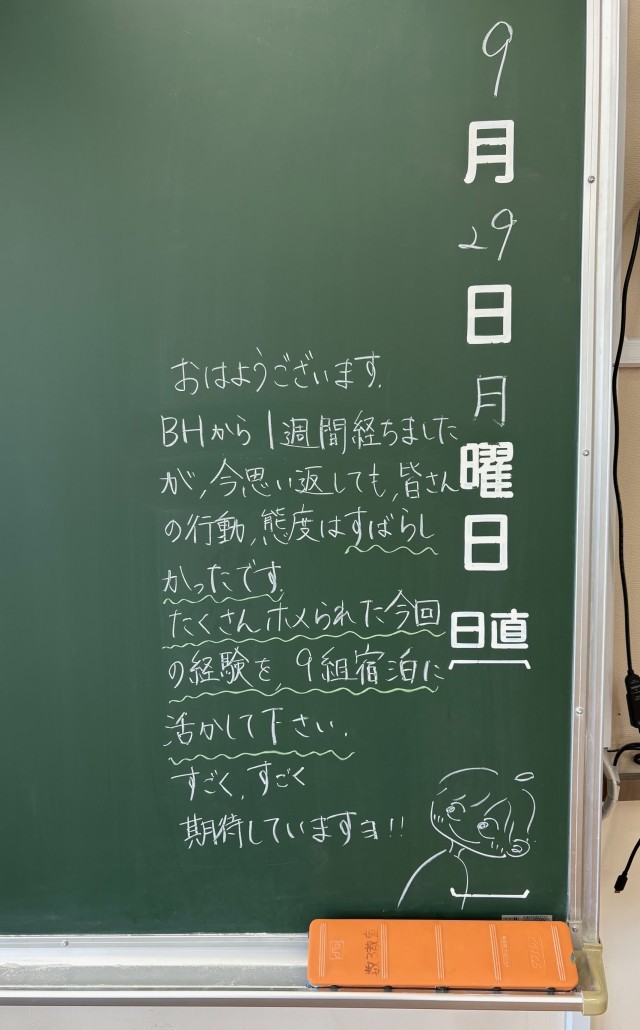 9月29日月曜日
日直
おはようございます.
BHから1週間経ちました
が,今思い返しても,皆さん
の行動,態度はすばらし
かったです.
たくさんホメられた今回
の経験を,9組宿泊に
活かして下さい.
すごく,すごく
期待していますョ!!